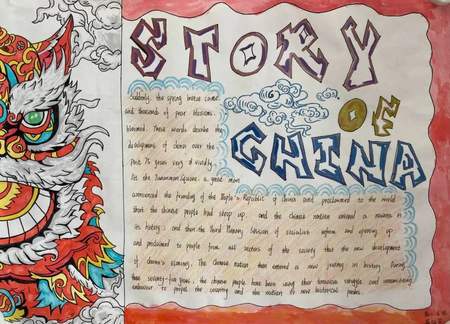 STORY
OF
CHINA
Suddenly, the spring breeze comes
and thousands of pear blossoms
bloomed. These words describe the
development of china over the
past 75 years very vividly.
At the Tiananmen Square, a great man
announced the founding of the People's Republic of China and proclaimed to the world
that the chinese people had stood up and the chinese nation entered a in
its history, and then the Third Plenary Session of socialist reform and opening up
and proclaimed to people from all sectors of the society that the new development
of china's is coming. The Chinese nation then entered a new journey in history. During
these seventy-five years, the chinese people have been using their tenacious struggle and
endeavour to propel the country and the nation its new historical